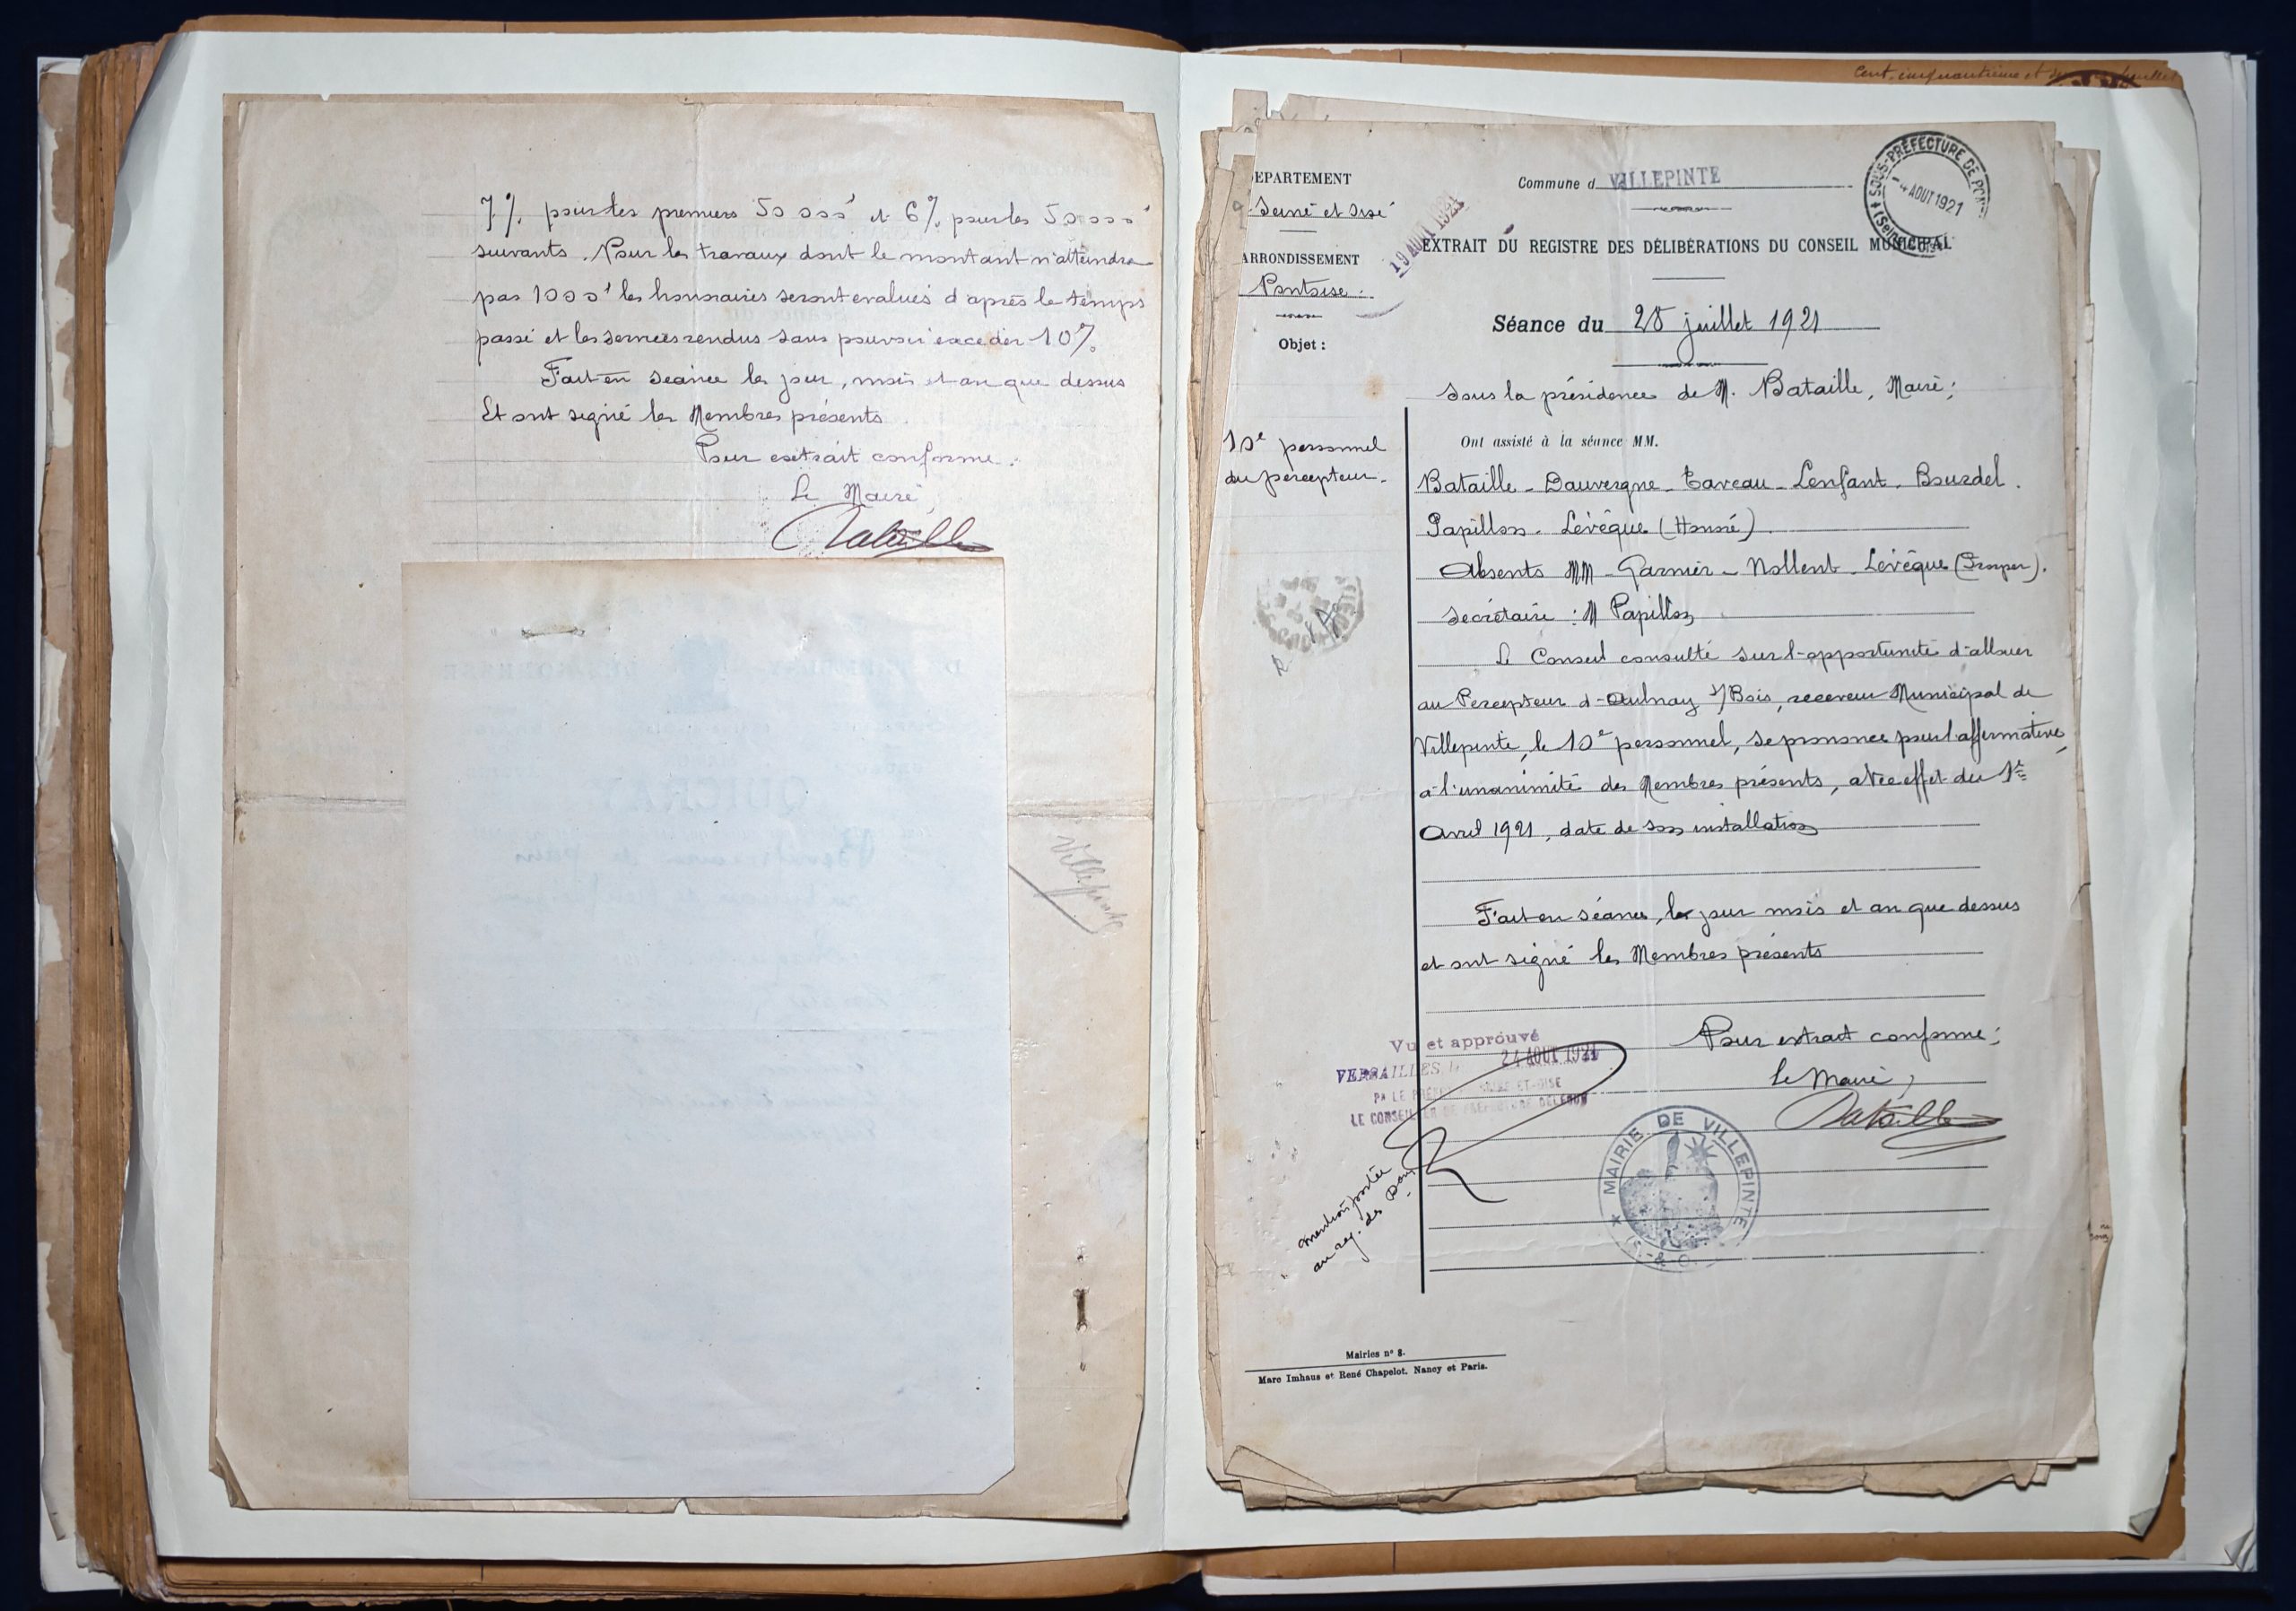 7%. pour les premiers 50 000f et 6% pour les 50 000f
suivants. Pour les travaux dont le montant n'atteindra
pas 1000f les honoraires seront evalués d'après le temps
passé et les services rendus sans pouvoir exceder 10%.
Fait en séance les jour, mois et an que dessus
Et ont signé les Membres présents
Pour extrait conforme.
Le Maire,
Bataille
Villepinte
Cent cinquantième et
DEPARTEMENT
Seine et Oise
ARRONDISSEMENT
Pontoise.
Objet :
10e personnel
du percepteur.
Commune d VILLEPINTE
SOUS-PRÉFECTURE DE PON
4 AOUT 1921
19 AOUT 1921
EXTRAIT DU REGISTRE DES DÉLIBÉRATIONS DU CONSEIL MUNICIPAL
Séance du 28 juillet 1921
Sous la présidence de M. Bataille, Maire;
Ont assisté à la séance MM.
Bataille - Dauvergne - Taveau - Lenfant - Bourdel.
Papillon - Levêque (Honoré)
Absents MM - Garnier - Nollent - Levêque (Prosper).
Secrétaire : M Papillon
Le Conseil consulté sur l'opportunité d'allouer
au Percepteur d'Aulnay s/Bois, receveur Municipal de
Villepinte, le 10e personnel, se prononce pour l'affirmative,
à l'unanimité des Membres présents, avec effet du 1er
Avril 1921, date de son installation
Fait en séance, les jour mois et an que dessus
et ont signé les Membres présents
Pour extrait conforme;
Le Maire,
Bataille
Vu et approuvé
VERSAILLES, le 24 AOUT 1921
LE CONSEILLER DE PRÉFECTURE DÉLÉGUÉ
mention portée
au reg. des
MAIRIE DE VILLEPINTE
(S.-&-O.)
Mairies n° 8.
Marc Imhaus et René Chapelot. Nancy et Paris.